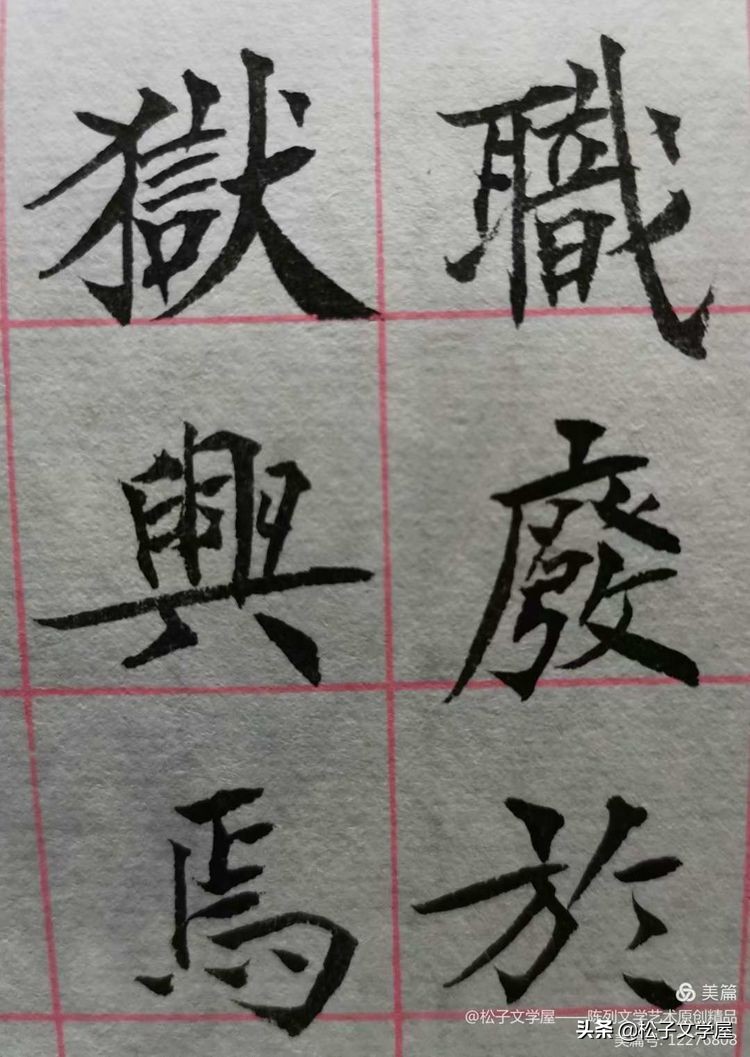 職廢於
獄興焉
美篇
@松子文学屋——陈列文学艺术原创精品
头条 @松子文学屋
美篇号:12276808